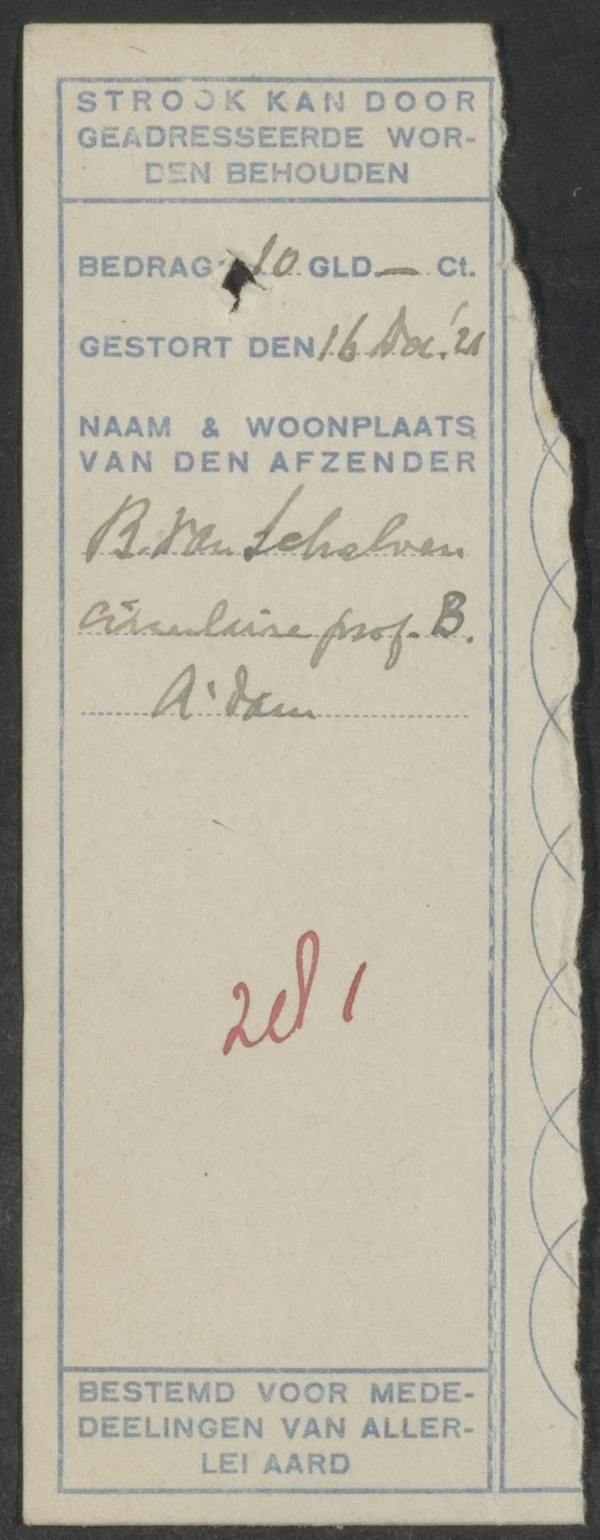 STROOK KAN DOOR
GEADRESSEERDE WOR-
DEN BEHOUDEN
BEDRAG 10 GLD. — Ct.
GESTORT DEN 16 Dec. '21
NAAM & WOONPLAATS
VAN DEN AFZENDER
B. van Schelven
circulaire prof. B.
A'dam
281
BESTEMD VOOR MEDE-
DEELINGEN VAN ALLER-
LEI AARD